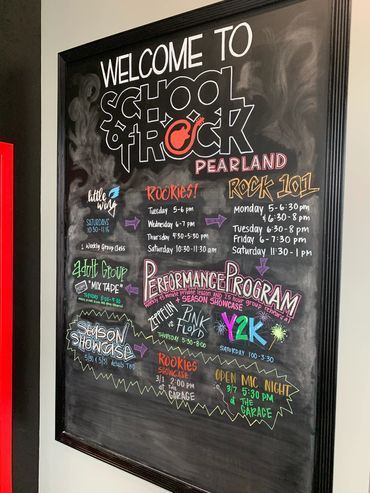 WELCOME TO
SCHOOL
of ROCK
PEARLAND
little
wing
SATURDAYS
1 Weekly Group Class
ROOKIES!
Tuesday 5-6 pm
Wednesday 6-7 pm
Thursday 4:30-5:30 pm
Saturday 10:30-11:30 am
ROCK 101
Monday 5-6:30pm
& 6:30-8 pm
Tuesday 6:30-8 pm
Friday 6-7:30 pm
Saturday 11:30-1 pm
adult Group
"MIX TAPE"
PERFORMANCE PROGRAM
+ SEASON SHOWCASE
ZEPPELIN
vs
PINK
FLOYD
THURSDAY 5:30-8:00
Y2K
SATURDAY 1:00-3:30
SEASON
SHOWCASE
ROOKIES
SHOWCASE
3/1 2:00 pm
at THE
GARAGE
OPEN MIC NIGHT
3/7 5:30 PM
@ THE
GARAGE